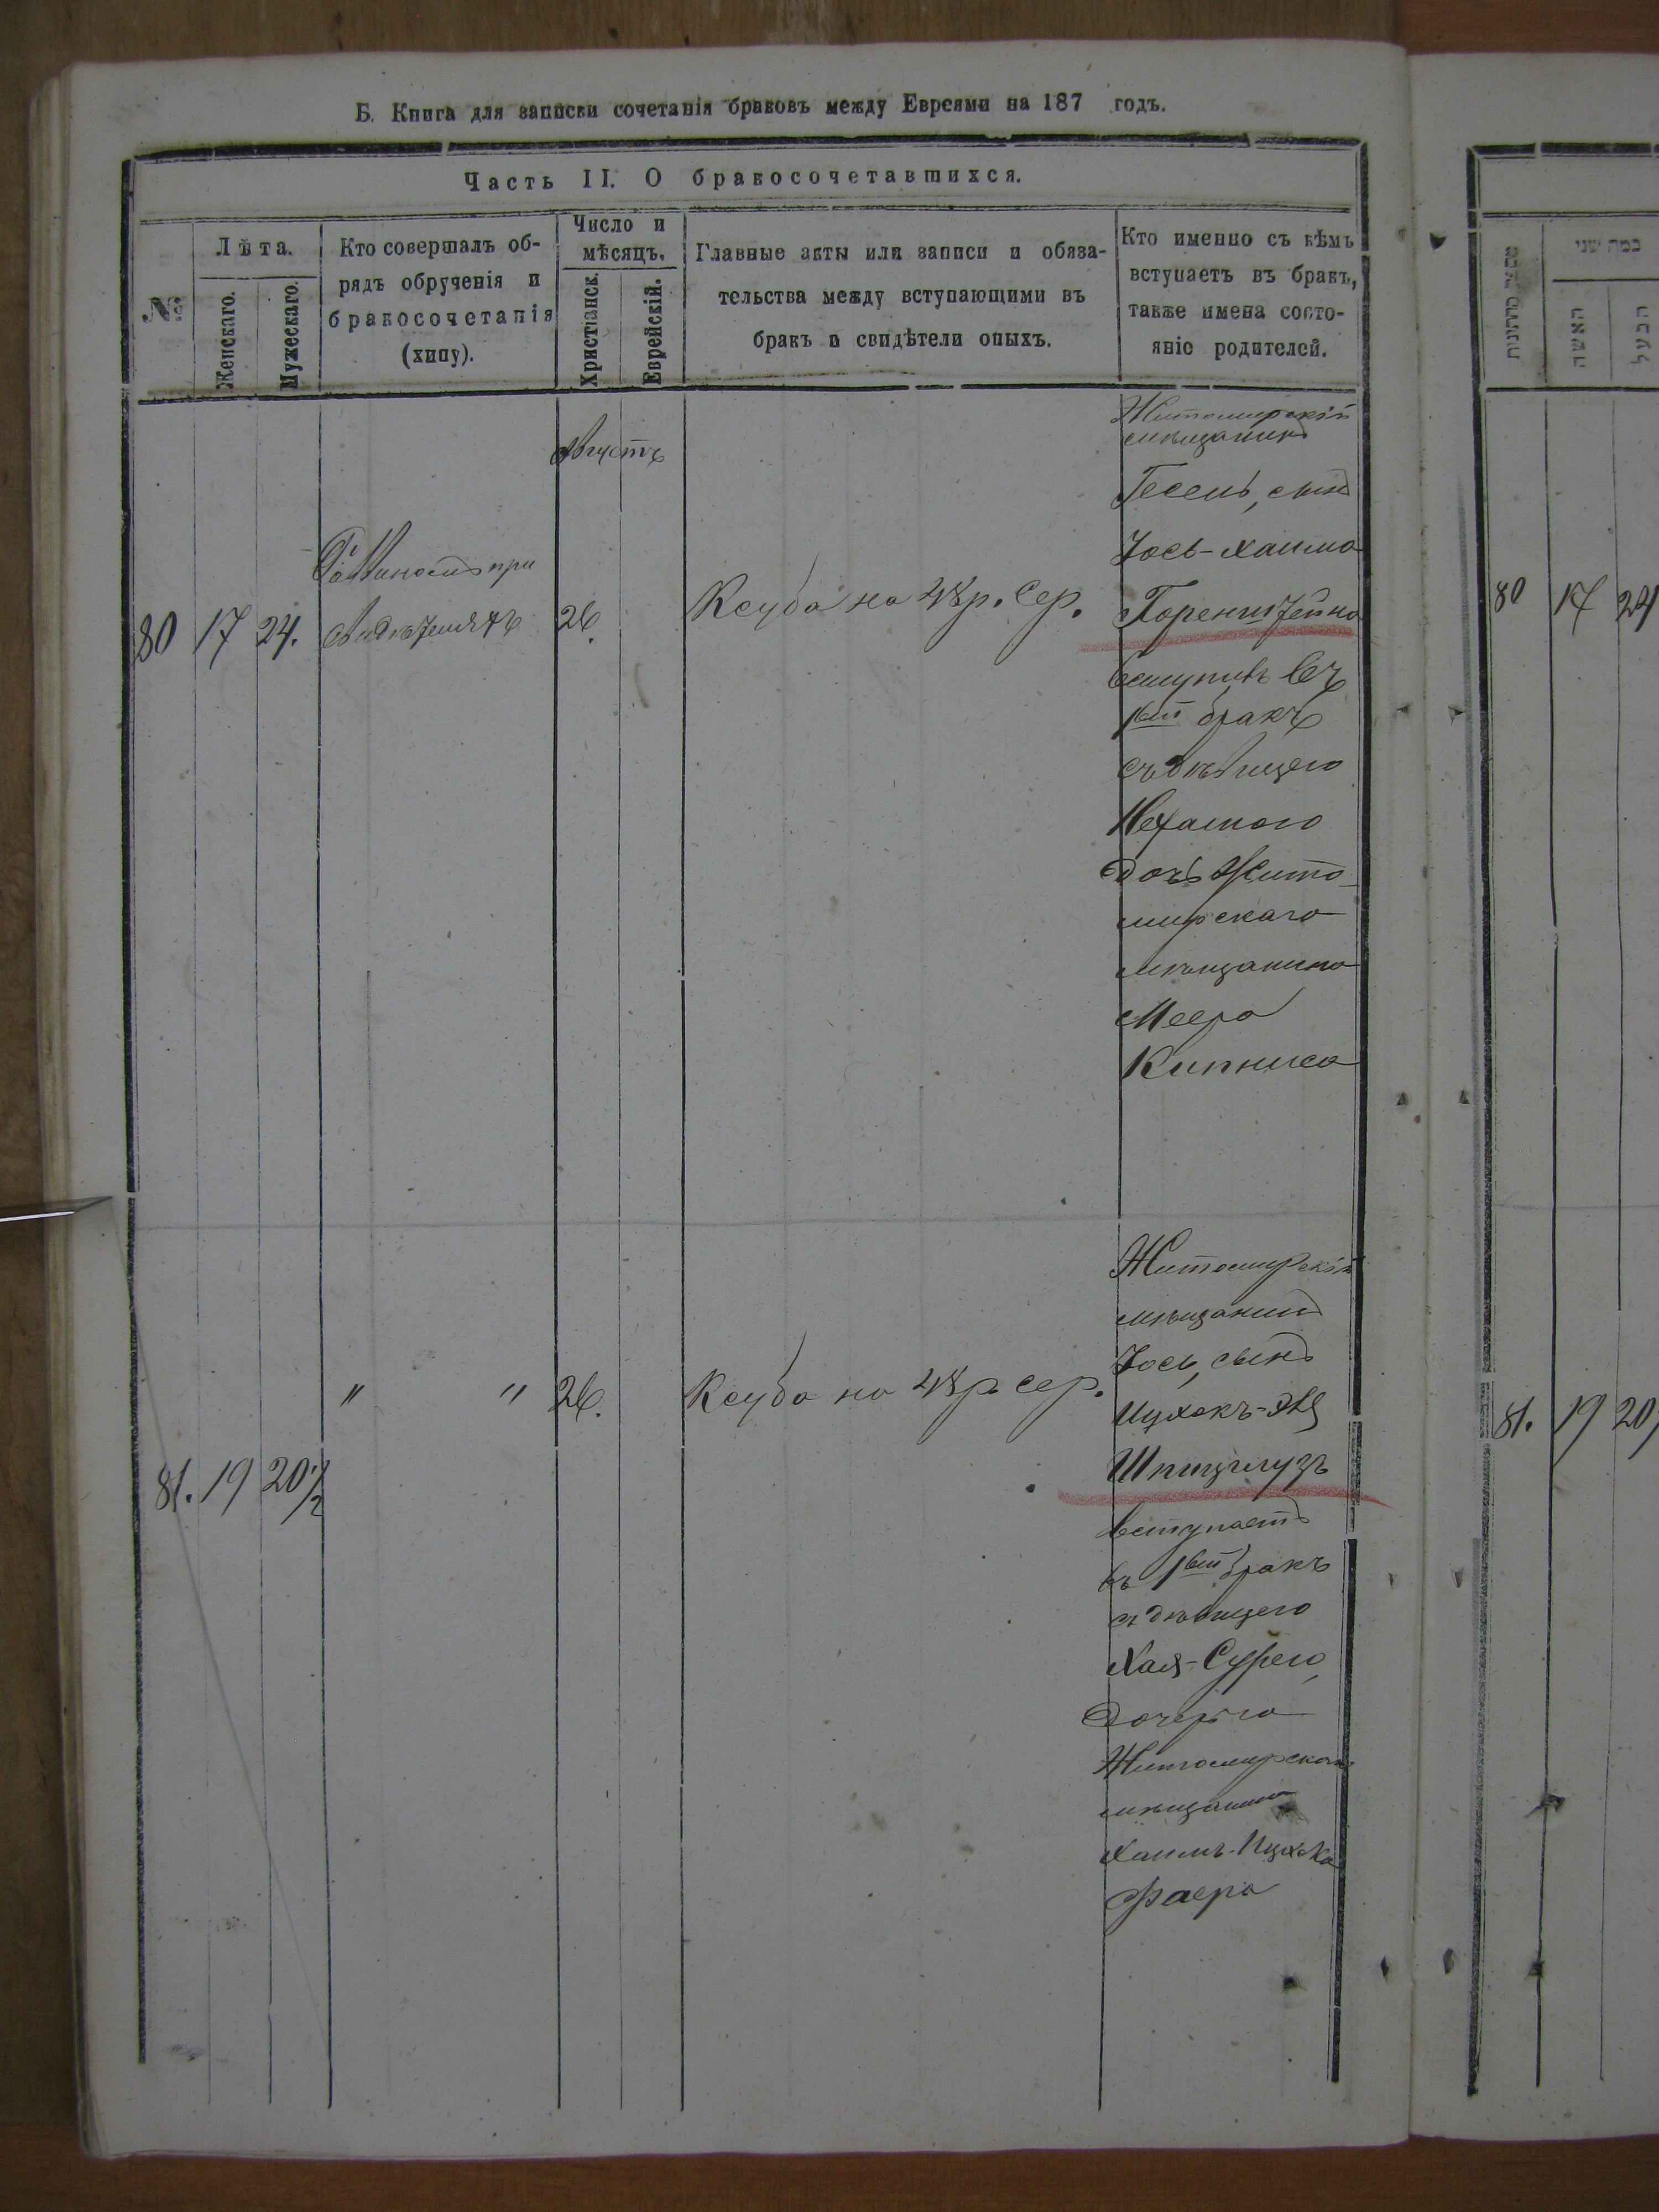 Б. Книга для записки сочетанія браковъ между Евреями на 187 годъ.
Часть II. О бракосочетавшихся.
№
Лѣта.
Женскаго.
Мужескаго.
Кто совершалъ об-
рядъ обрученія и
бракосочетанія
(хипу).
Число и
мѣсяцъ.
Христіанск.
Еврейскій.
Главные акты или записи и обяза-
тельства между вступающими въ
бракъ и свидѣтели оныхъ.
Кто именно съ кѣмъ
вступаетъ въ бракъ,
также имена состо-
яніе родителей.
Августъ
80 17 24.
Раввинъ при
26
Ксуба на 48 р. Сер.
Житомирскій
мѣщанинъ
Гесель, сынъ
Іось-Хаима
Горенштейна
вступивъ въ
1вый бракъ
съ дѣвицею
Нехамою
дочь Жито-
мирскаго
мѣщанина
Меера
Кипниса
81. 19 20 1/2
" "
26.
Ксуба на 48 р. сер.
Житомирскій
мѣщанинъ
Іось, сынъ
Ицхокъ-
вступаетъ
въ 1вый бракъ
съ дѣвицею
Хая-Сурею,
дочерью
Житомирскаго
мѣщанина
Хаимъ-Ицхока
Фаера
כמה שני
האשה
הבעל
80 17 24
81. 19 20